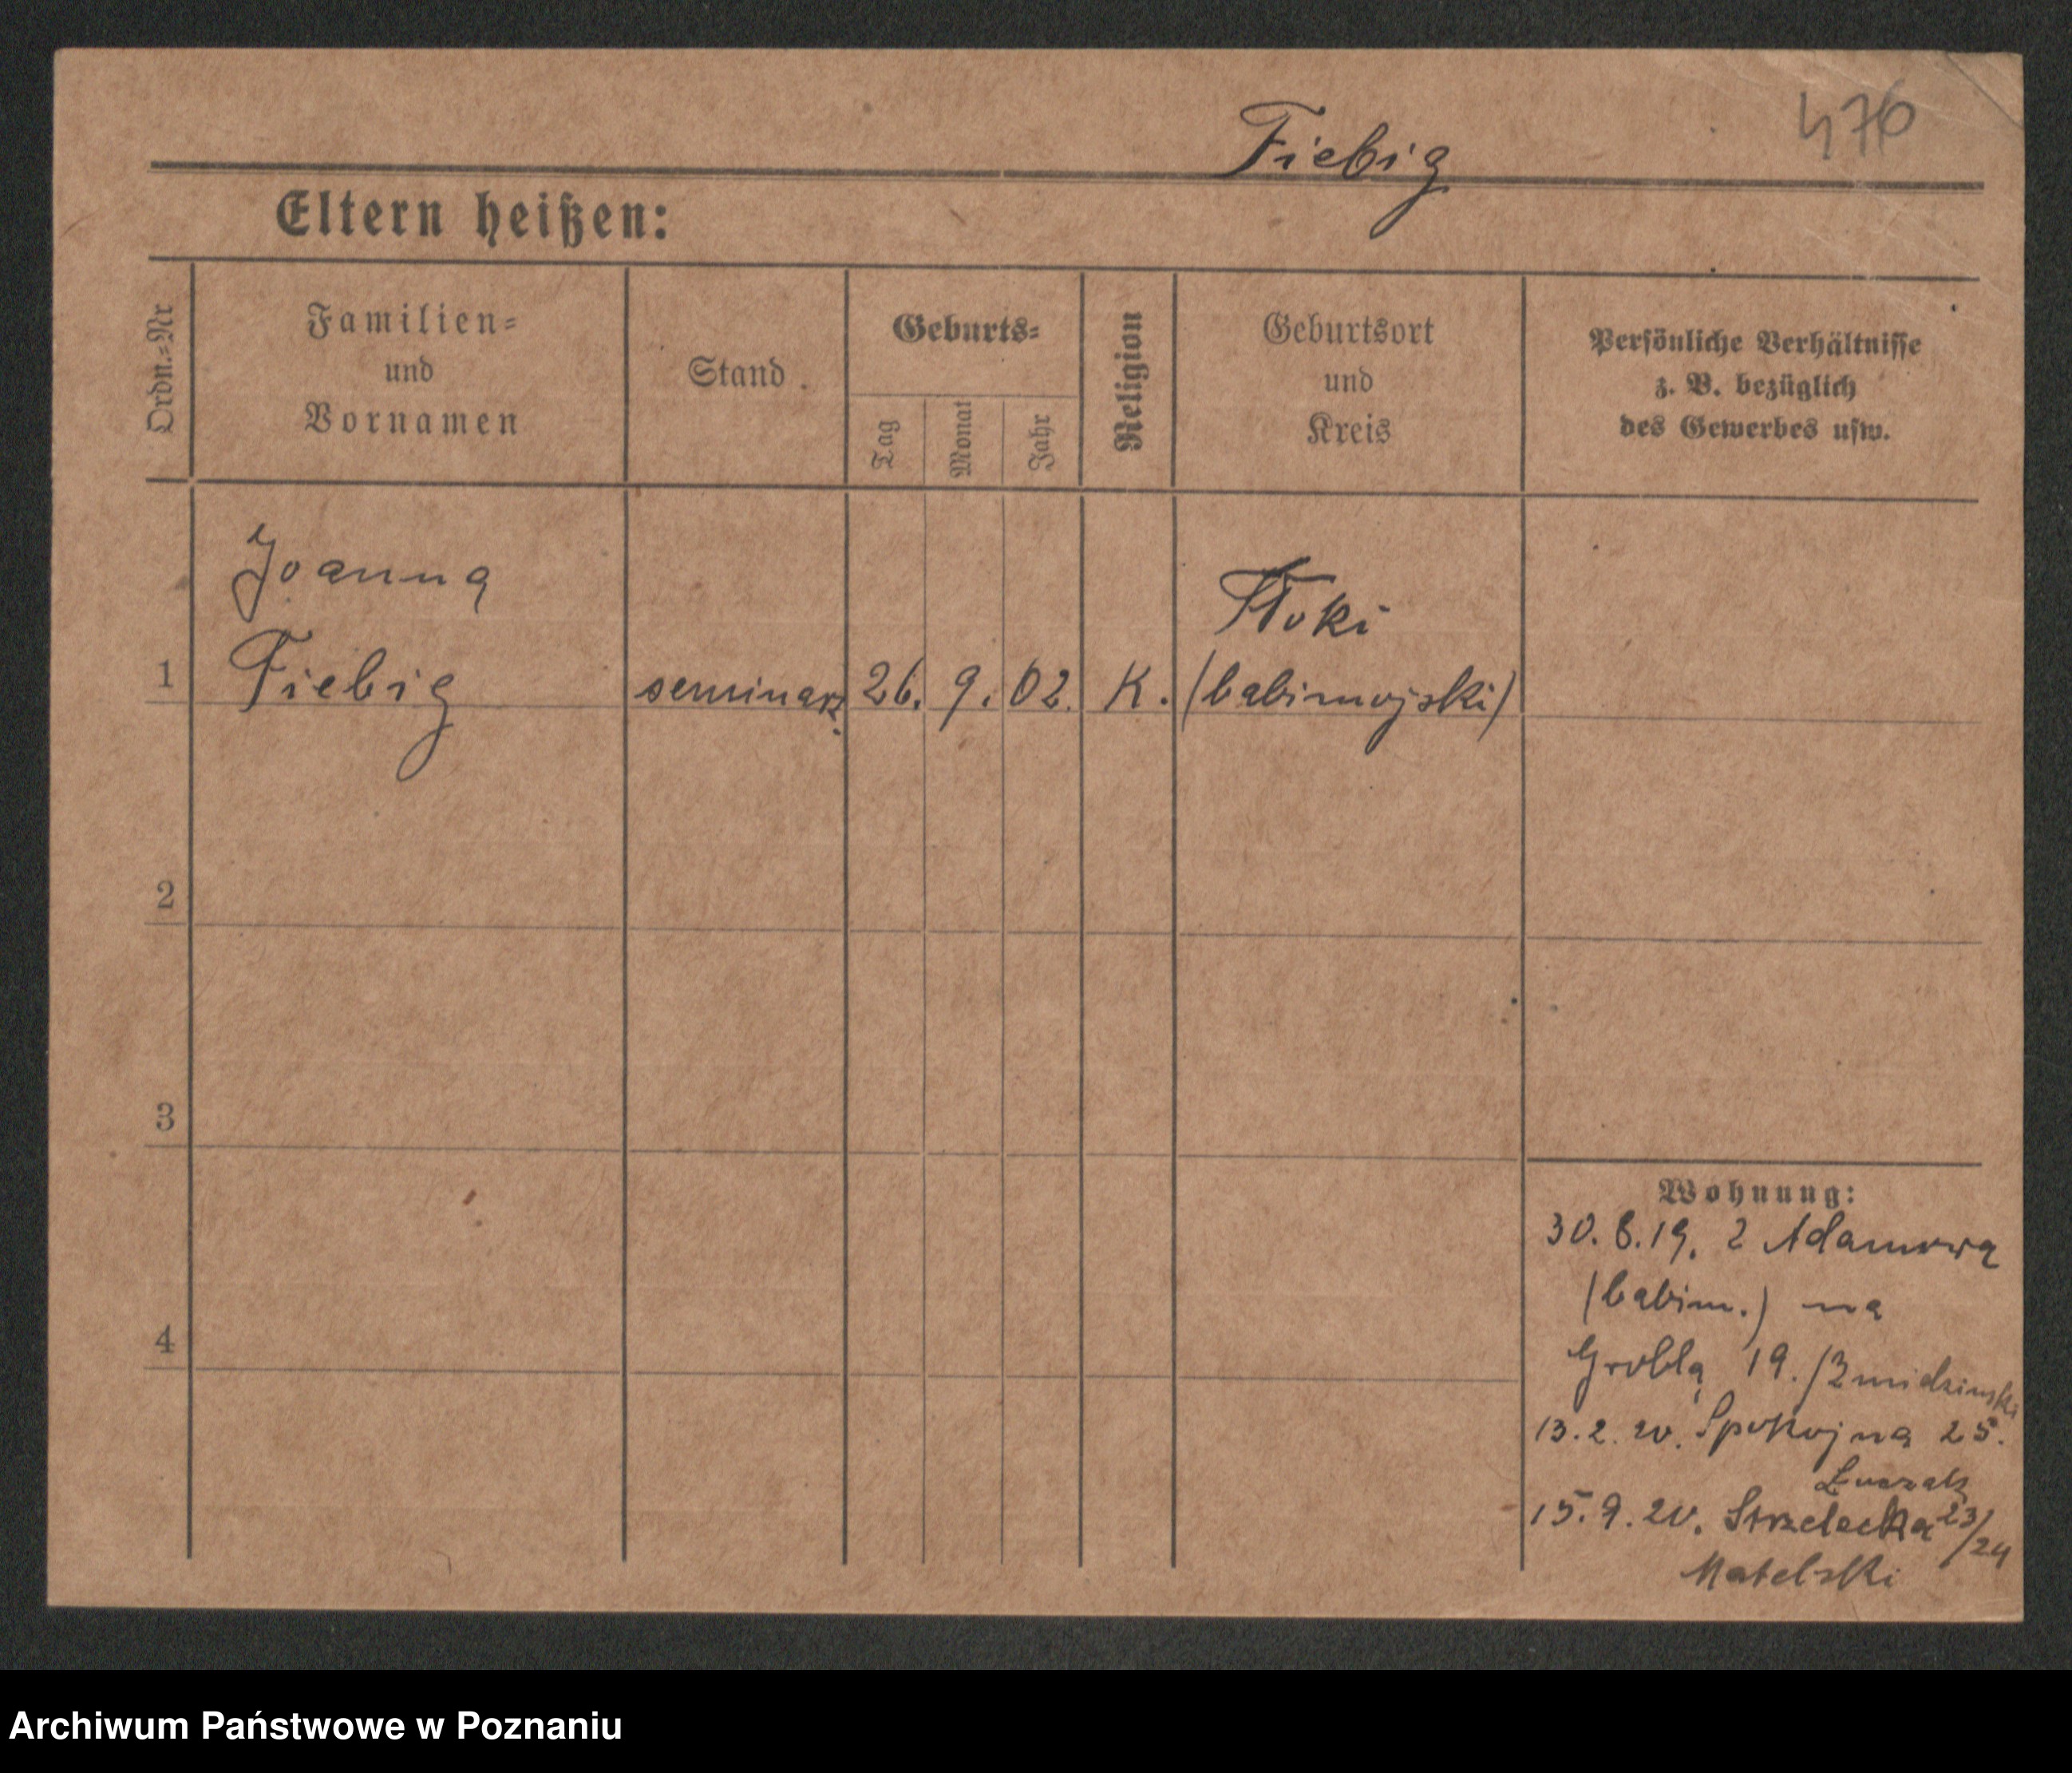 476
Fiebig
Eltern heißen:
Ordn.=Nr
Familien=
und
Vornamen
Stand
Geburts=
Tag
Monat
Jahr
Religion
Geburtsort
und
Kreis
Persönliche Verhältnisse
z. B. bezüglich
des Gewerbes usw.
Joanna
Fiebig
1
seminarz.
26. 9. 02. K.
Tłoki
(babimojski)
2
3
4
Wohnung:
30. 8. 19. z Adamowa
(babim.) na
Groblą 19. /
13. 2. 20. Spokojna 25.
15. 9. 20. Strzelecka 23/24
Matelski
Archiwum Państwowe w Poznaniu